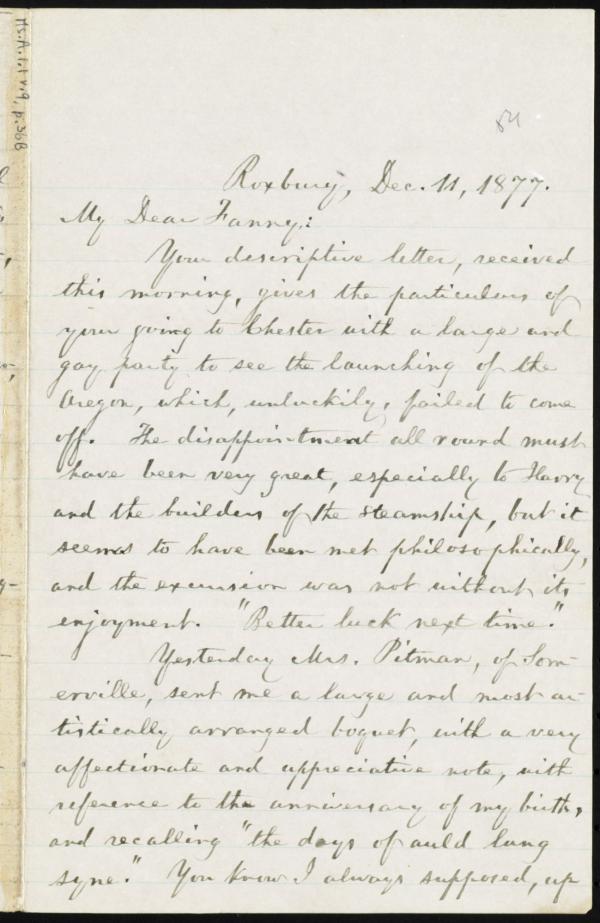 Ms.A.1.1 v.9, p.36B
Roxbury, Dec. 11, 1877.
My Dear Fanny:
Your descriptive letter, received
this morning, gives the particulars of
your going to Chester with a large and
gay party to see the launching of the
Oregon, which, unluckily, failed to come
off. The disappointment all round must
have been very great, especially to Harry
and the builders of the steamship, but it
seems to have been met philosophically,
and the excursion was not without its
enjoyment. "Better luck next time."
Yesterday Mrs. Pitman, of Som-
erville, sent me a large and most ar-
tistically arranged boquet, with a very
affectionate and appreciative note, with
reference to the anniversary of my birth,
and recalling "the days of auld lang
syne." You know I always supposed, up